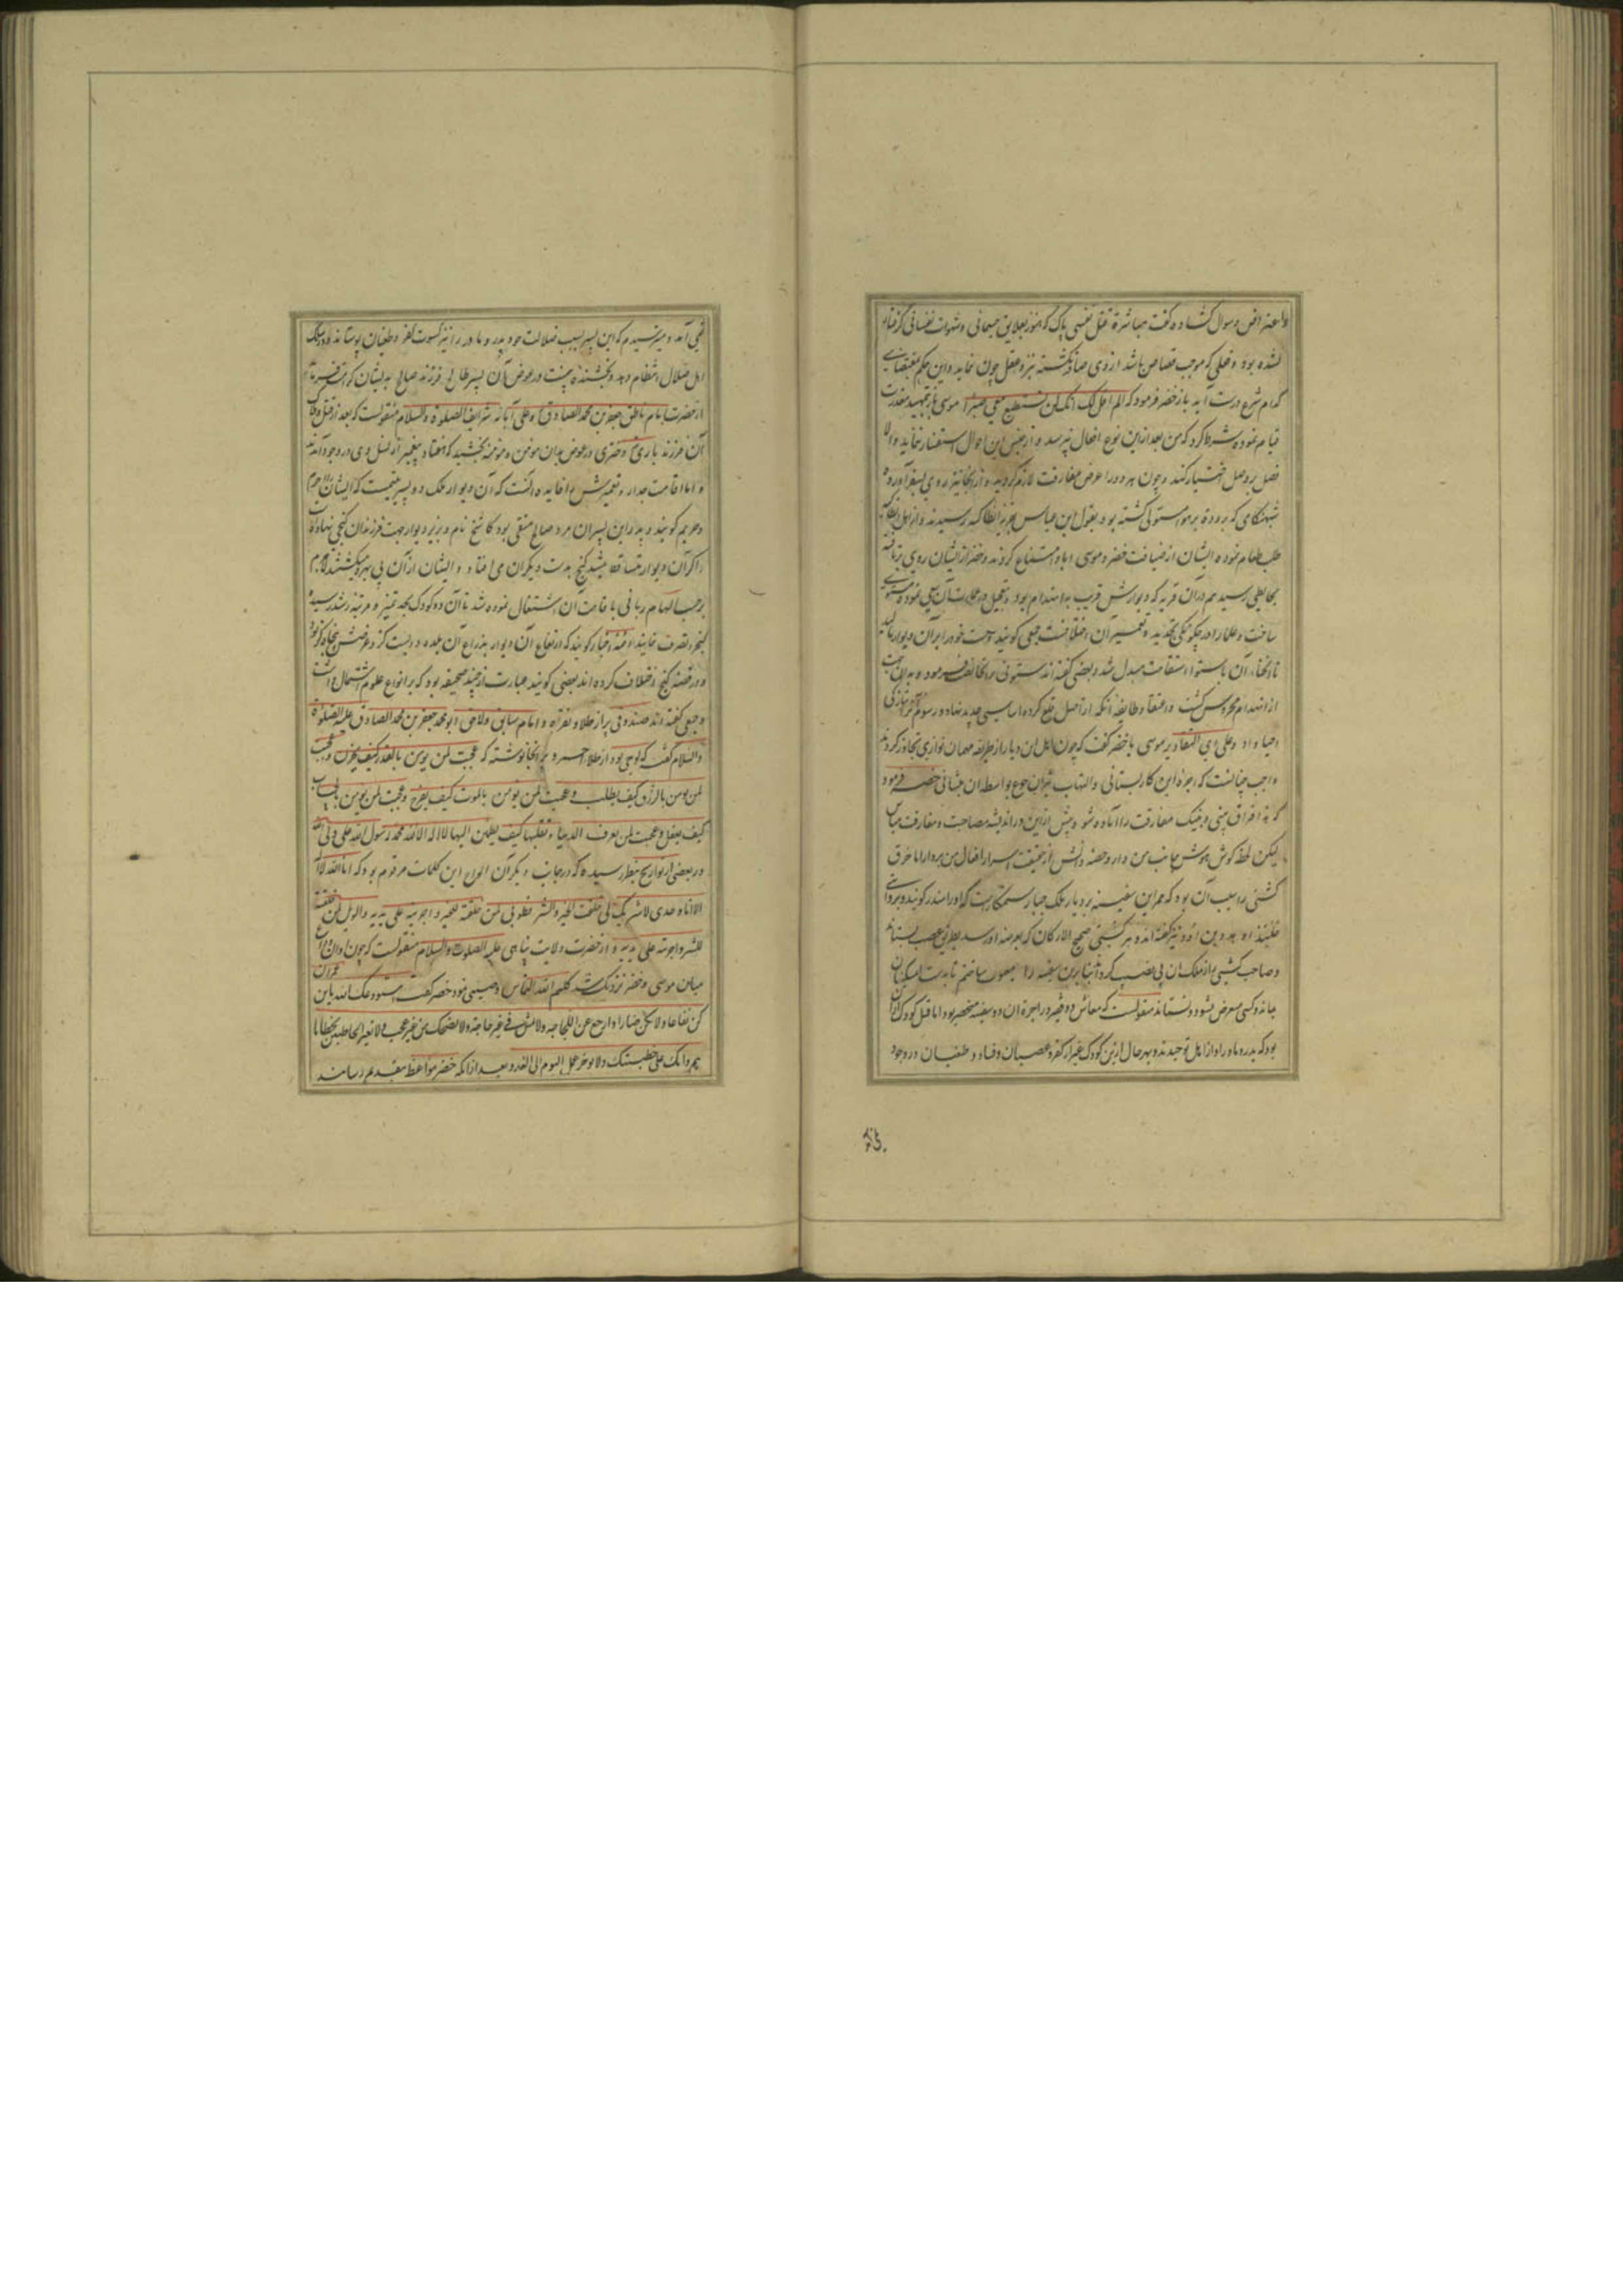 واعتراض و سوال کشاده گفت مباشرة قتل نفسی پاک که هنوز بعلایق جسمانی و شهوات نفسانی گرفتار
نشده بود و فعلی که موجب قصاص باشد از وی صادر نکشته نزد عقل چون نماید و این حکم بمقتضای
کدام شرع درست آید باز خضر فرمود که الم اقل لک انک لن تستطیع معی صبرا موسی باز بتمهید معذرت
قیام نموده شرط کرد که من بعد ازین نوع افعال نپرسد و از جنس این احوال استفسار ننماید والا
فصل بر وصل اختیار کنند و چون هر دو را عرض مفارقت لازم گردید و از آنجا نیز روی بسفر آورده
شبهنکامی که برودة بر هوا مستولی کشته بود بقول ابن عباس بقریه انطاکیه رسیدند و از اهل انطاکیه
طلب طعام نموده ایشان از ضیافت خضر و موسی ابا و امتناع کردند و خضر از ایشان روی برتافته
بحایطی رسید هم در آن قریه که دیوارش قریب به انهدام بود و بتعجیل در عمارت آن سعی نموده مستوی
ساخت و علما را در چکونکی تجدید و تعمیر آن اختلافست جمعی کویند دست خود را بر آن دیوار مالید
تا انحناء آن باستوا و استقامت مبدل شد و بعضی گفته اند ستونی بر انجا نصب فرمود و بدان سبب
از انهدام محروس کشت و اعتقاد طایفه آنکه از اصل قلع کرده اساسی جدید نهاد و رسوم آنرا بتازکی
احیا داد و علی ای التقادیر موسی با خضر گفت که چون اهل این دیار از طریقه مهمان نوازی تجاوز کردند
واجب چنانست که اجرة این کار بستانی و التهاب نیران جوع بواسطه آن بنشانی خضر فرمود
که هذا فراق بینی و بینک مفارقت را آماده شو و پیش ازین در اندیشه مصاحبت و مفارقت مباش
لیکن لحظه کوش هوش بجانب من دار و حصه دانش از حقیقت اسرار افعال من بردار اما خرق
کشتی را سبب آن بود که ممر این سفینه بر دیار ملک جبار ستمکاریست که او را مندر کویند و بروایتی
جلندا و هدد بن بدد نیز گفته اند و هر کشتی صحیح الارکان که بعرضه او رسد بطریق غصب بستاند
و صاحب کشتی را از ملک آن بی نصیب کرداند بنابرین سفینه را معیوب ساختم تا بدست مسکینان
بماند و کسی معرض نشود و نستاند منقولست که معاش ده فقیر در اجرة آن دو سفینه منحصر بود اما قتل کودک از آن
بود که پدر و مادر او از اهل توحیدند و بهر حال ازین کودک غیر از کفر و عصیان و فساد و طغیان در وجود
نمی آمد و میترسیدم که این پسر بسبب ضلالت خود پدر و مادر را نیز کسوت کفر و طغیان پوشاند و در سلک
اهل ضلال انتظام دهد و بخشنده بیمنت در عوض آن پسر طالح فرزند صالح بدیشان کرامت فرماید
از حضرت امام ناطق جعفر بن محمد الصادق علیه و علی آبائه شرایف الصلوة والسلام منقولست که بعد از قتل و هلاک
آن فرزند باری دختری در عوض بدان مومن و مومنه بخشید که هفتاد پیغمبر از نسل وی در وجود آمدند
و اما اقامت جدار و تعمیرش را فایده آنست که آن دیوار ملک دو پسر یتیمست که ایشانرا اصرم
و صریم کویند و پدر این پسران مرد صالح متقی بود کاشح نام و بزیر دیوار جهت فرزندان گنجی نهاده
اکر آن دیوار متساقط میشد کنج بدست دیکران می افتاد و ایشان از آن بی بهره میکشتند لاجرم
بر حسب الهام ربانی باقامت آن اشتغال نموده شد تا آن دو کودک بحد تمیز و مرتبه رشد رسیده
کنج را تصرف نمایند ائمه اخبار کویند که ارتفاع آن دیوار بذراع آن بلده دویست کز و عرضش پنجاه کز بود
و در قصه کنج اختلاف کرده اند بعضی کویند عبارت از چند صحیفه بود که بر انواع علوم اشتمال داشت
و جمعی گفته اند صندوقی پر از طلا و نقره و امام سابق و لاحق ابو محمد جعفر بن محمد الصادق علیه الصلوة
والسلام گفت که لوحی بود از طلاء احمر و بر آنجا نوشته که عجبت لمن یومن بالقدر کیف یحزن و عجبت
لمن یومن بالرزق کیف یطلب و عجبت لمن یومن بالموت کیف یفرح و عجبت لمن یومن بالحساب
کیف یغفل و عجبت لمن یعرف الدنیا و تقلبها کیف یطمئن الیها لا اله الا الله محمد رسول الله علی ولی الله
و در بعضی از تواریخ بنظر رسیده که در جانب دیکر آن لوح این کلمات مرقوم بود که انا الله لا اله
الا انا وحدی لا شریک لی خلقت الخیر والشر فطوبی لمن خلقته للخیر و اجریته علی یدیه والویل لمن خلقته
للشر و اجریته علی یدیه و از حضرت ولایت پناهی علیه الصلوات والسلام منقولست که چون اوان وداع
میان موسی و خضر نزدیک شد کلیم الله التماس وصیتی نمود خضر گفت استودعک الله یا بن عمران
کن نفاعا و لا تکن ضرارا و ارجع عن اللجاجه و لا تمش فی غیر حاجة و لا تضحک من غیر عجب و لا تعیر الخاطیین بخطایا
هم و ابک علی خطیئتک و لا توخر عمل الیوم الی الغد و بعد از آنکه خضر مواعظ بتقدیم رسانید